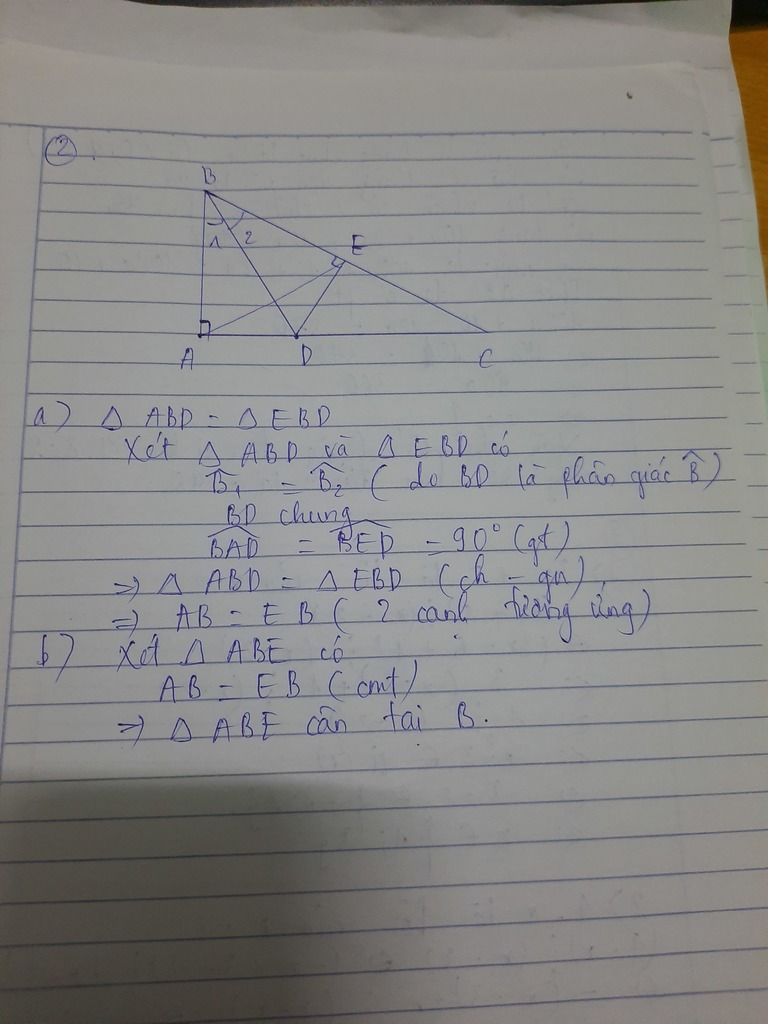 2
B
1 2
E
A D C
a) Δ ABD = Δ EBD
Xét Δ ABD và Δ EBD có
B̂₁ = B̂₂ ( do BD là phân giác B̂ )
BD chung
B͡AD = B͡ED = 90° (gt)
=> Δ ABD = Δ EBD ( ch - gn )
=> AB = EB ( 2 cạnh tương ứng )
b) Xét Δ ABE có
AB = EB ( cmt )
=> Δ ABE cân tại B.